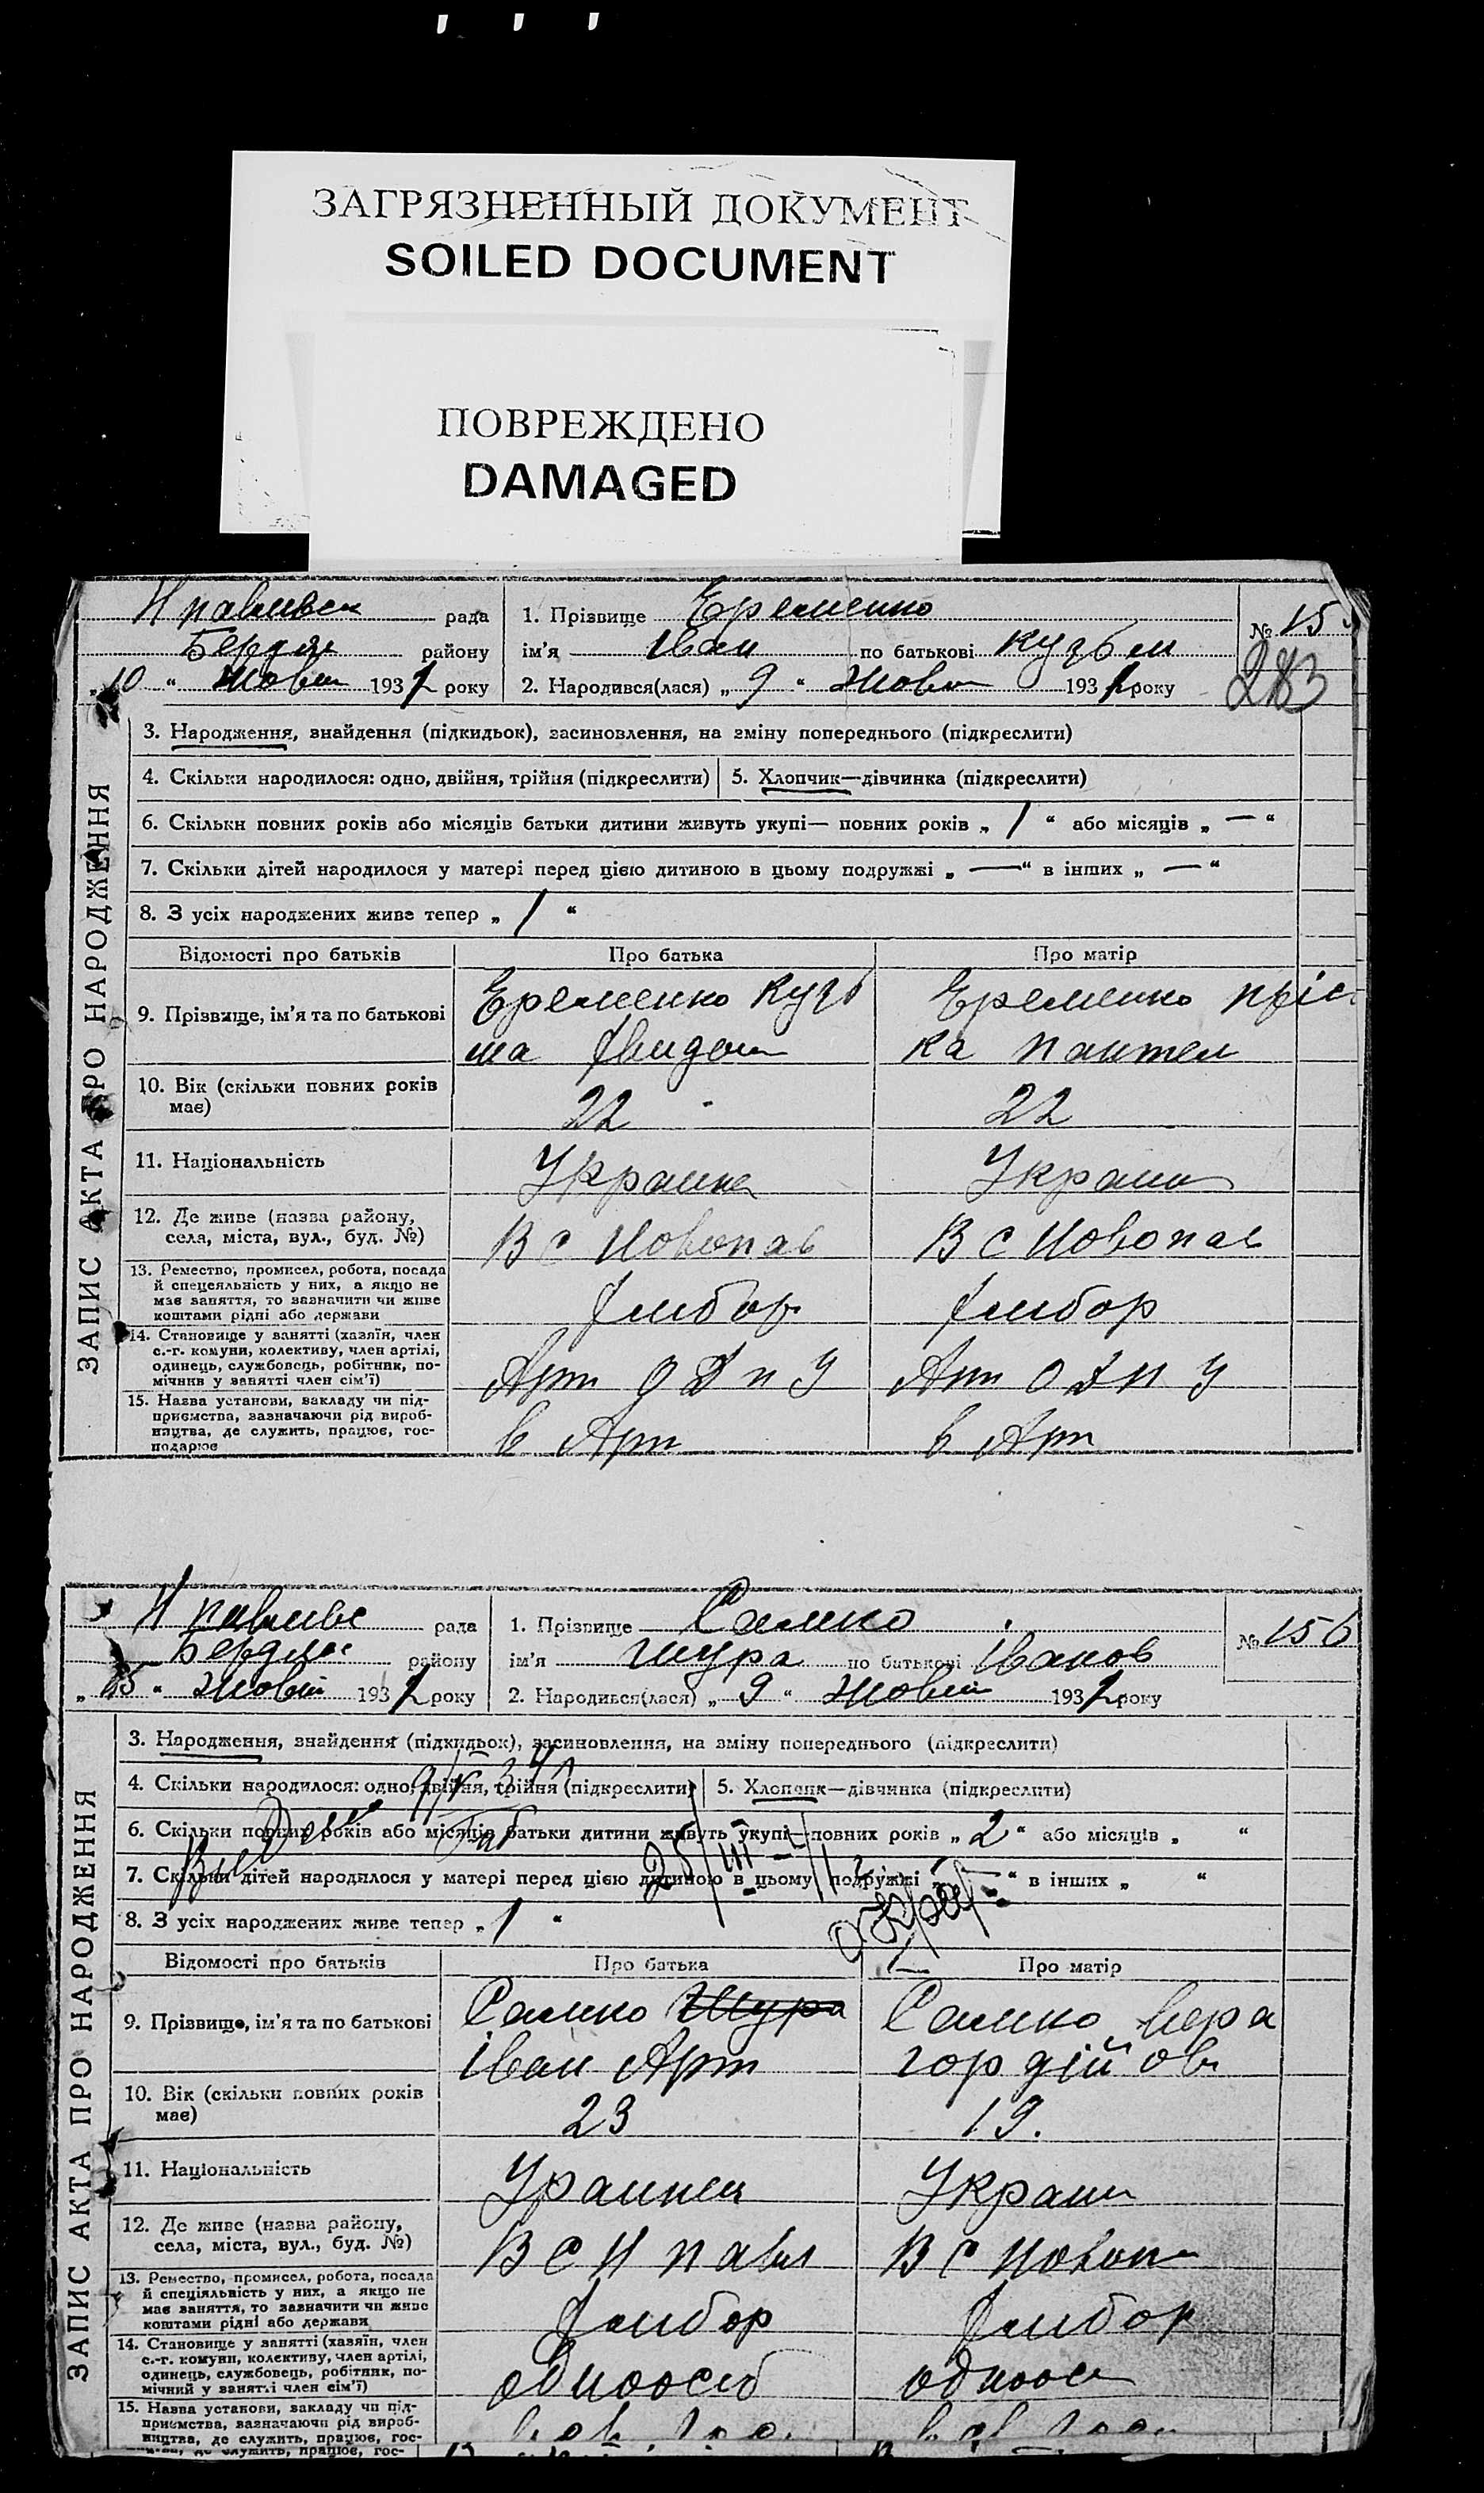 ЗАГРЯЗНЕННЫЙ ДОКУМЕНТ
SOILED DOCUMENT
ПОВРЕЖДЕНО
DAMAGED
Н павливск рада
Бердян району
„10“ Жовт 1932 року
1. Прізвище Еременко
ім'я Іван по батькові Кузьм
2. Народився(лася) „9“ Жовт 1932 року
№ 15
283
ЗАПИС АКТА ПРО НАРОДЖЕННЯ
3. Народження, знайдення (підкидьок), засиновлення, на зміну попереднього (підкреслити)
4. Скільки народилося: одно, двійня, трійня (підкреслити) 5. Хлопчик—дівчинка (підкреслити)
6. Скільки повних років або місяців батьки дитини живуть укупі— повних років „ 1 “ або місяців „ — “
7. Скільки дітей народилося у матері перед цією дитиною в цьому подружжі „ — “ в інших „ — “
8. З усіх народжених живе тепер „ 1 “
Відомості про батьків Про батька Про матір
9. Прізвище, ім'я та по батькові
Еременко Кузь
ма
Еременко Пріс
ка Пантел
10. Вік (скільки повних років
має)
22 22
11. Національність
Украине Украин
12. Де живе (назва району,
села, міста, вул., буд. №)
В с Новопав В с Новопав
13. Ремество, промисел, робота, посада
й спецеяльність у них, а якщо не
має заняття, то зазначити чи живе
коштами рідні або держави
Хлибор Хлибор
14. Становище у занятті (хазяїн, член
с.-г. комуни, колективу, член артілі,
одинець, службовець, робітник, по-
мічник у занятті член сім'ї)
Арт О Д П У Арт О Д П У
15. Назва установи, закладу чи під-
приємства, зазначаючи рід вироб-
ництва, де служить, працює, гос-
подарює
в Арт в Арт
Н павливс рада
Бердянс району
„15“ Жовт 1932 року
1. Прізвище Самко
ім'я Шура по батькові Іванов
2. Народився(лася) „9“ Жовт 1932 року
№ 156
ЗАПИС АКТА ПРО НАРОДЖЕННЯ
3. Народження, знайдення (підкидьок), засиновлення, на зміну попереднього (підкреслити)
4. Скільки народилося: одно, двійня, трійня (підкреслити) 5. Хлопчик—дівчинка (підкреслити)
6. Скільки повних років або місяців батьки дитини живуть укупі—повних років „ 2 “ або місяців „ “
7. Скільки дітей народилося у матері перед цією дитиною в цьому подружжі „ — “ в інших „ “
8. З усіх народжених живе тепер „ 1 “
Відомості про батьків Про батька Про матір
9. Прізвище, ім'я та по батькові
Самко Шура
Іван Арт
Самко Вера
Гордійов
10. Вік (скільки повних років
має)
23 19.
11. Національність
Ураинец Украин
12. Де живе (назва району,
села, міста, вул., буд. №)
В с Н павл В с Новоп
13. Ремество, промисел, робота, посада
й спеціяльність у них, а якщо не
має заняття, то зазначити чи живе
коштами рідні або держави
Хлибор Хлибор
14. Становище у занятті (хазяїн, член
с.-г. комуни, колективу, член артілі,
одинець, службовець, робітник, по-
мічний у занятті член сім'ї)
одноосіб одноос
15. Назва установи, закладу чи під-
приємства, зазначаючи рід вироб-
ництва, де служить, працює, гос-